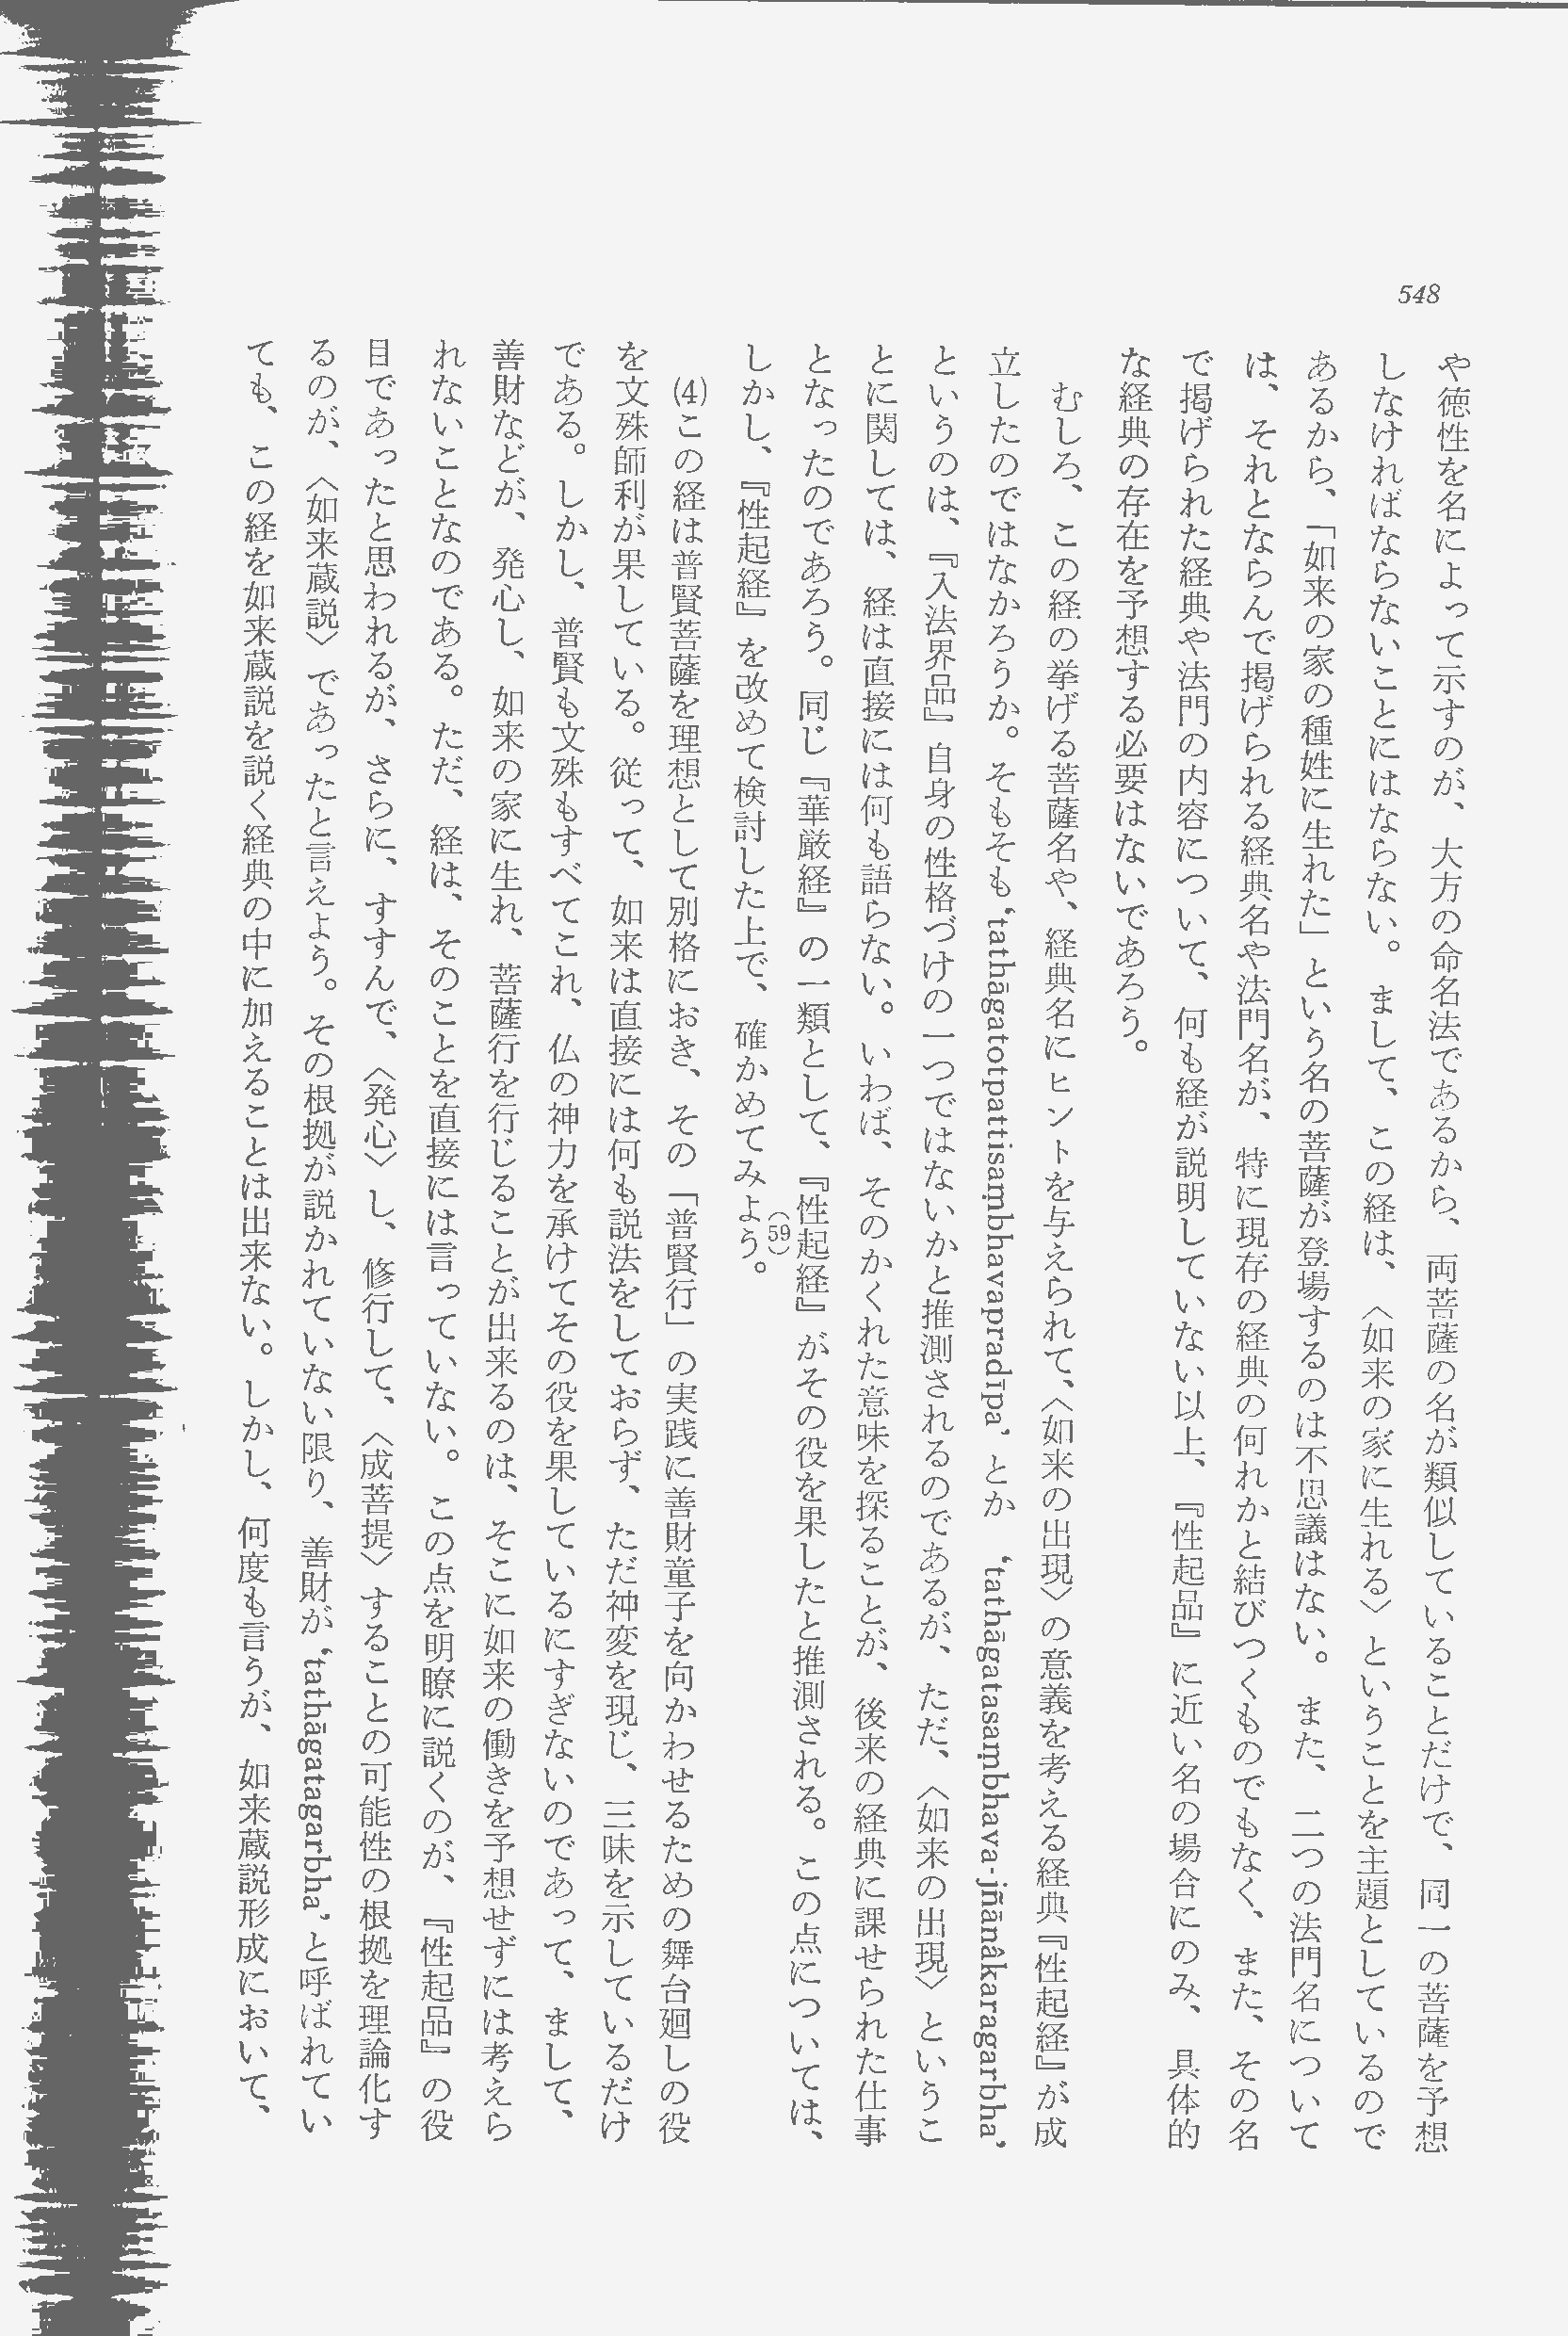 548
や徳性を名によって示すのが、大方の命名法であるから、両菩薩の名が類似していることだけで、同一の菩薩を予想
しなければならないことにはならない。まして、この経は、〈如来の家に生れる〉ということを主題としているので
あるから、「如来の家の種姓に生れた」という名の菩薩が登場するのは不思議はない。また、二つの法門名について
は、それとならんで掲げられる経典名や法門名が、特に現存の経典の何れかと結びつくものでもなく、また、その名
で掲げられた経典や法門の内容について、何も経が説明していない以上、『性起品』に近い名の場合にのみ、具体的
な経典の存在を予想する必要はないであろう。
むしろ、この経の挙げる菩薩名や、経典名にヒントを与えられて、〈如来の出現〉の意義を考える経典『性起経』が成
立したのではなかろうか。そもそも ‘tathāgatotpattisaṃbhavapradīpa’ とか ‘tathāgatasaṃbhava-jñānâkaragarbha’
というのは、『入法界品』自身の性格づけの一つではないかと推測されるのであるが、ただ、〈如来の出現〉というこ
とに関しては、経は直接には何も語らない。いわば、そのかくれた意味を探ることが、後来の経典に課せられた仕事
となったのであろう。同じ『華厳経』の一類として、『性起経』がその役を果したと推測される。この点については、
しかし、『性起経』を改めて検討した上で、確かめてみよう。(59)
(4) この経は普賢菩薩を理想として別格におき、その「普賢行」の実践に善財童子を向かわせるための舞台廻しの役
を文殊師利が果している。従って、如来は直接には何も説法をしておらず、ただ神変を現じ、三昧を示しているだけ
である。しかし、普賢も文殊もすべてこれ、仏の神力を承けてその役を果しているにすぎないのであって、まして、
善財などが、発心し、如来の家に生れ、菩薩行を行じることが出来るのは、そこに如来の働きを予想せずには考えら
れないことなのである。ただ、経は、そのことを直接には言っていない。この点を明瞭に説くのが、『性起品』の役
目であったと思われるが、さらに、すすんで、〈発心〉し、修行して、〈成菩提〉することの可能性の根拠を理論化す
るのが、〈如来蔵説〉であったと言えよう。その根拠が説かれていない限り、善財が ‘tathāgatagarbha’ と呼ばれてい
ても、この経を如来蔵説を説く経典の中に加えることは出来ない。しかし、何度も言うが、如来蔵説形成において、